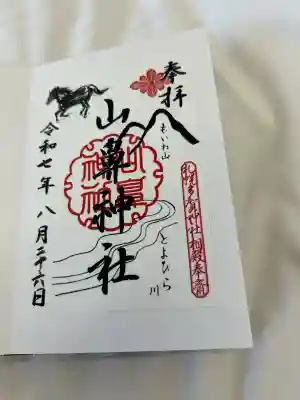 奉拝
山鼻神社
もいわ山
とよひら
川
令和七年八月二十六日